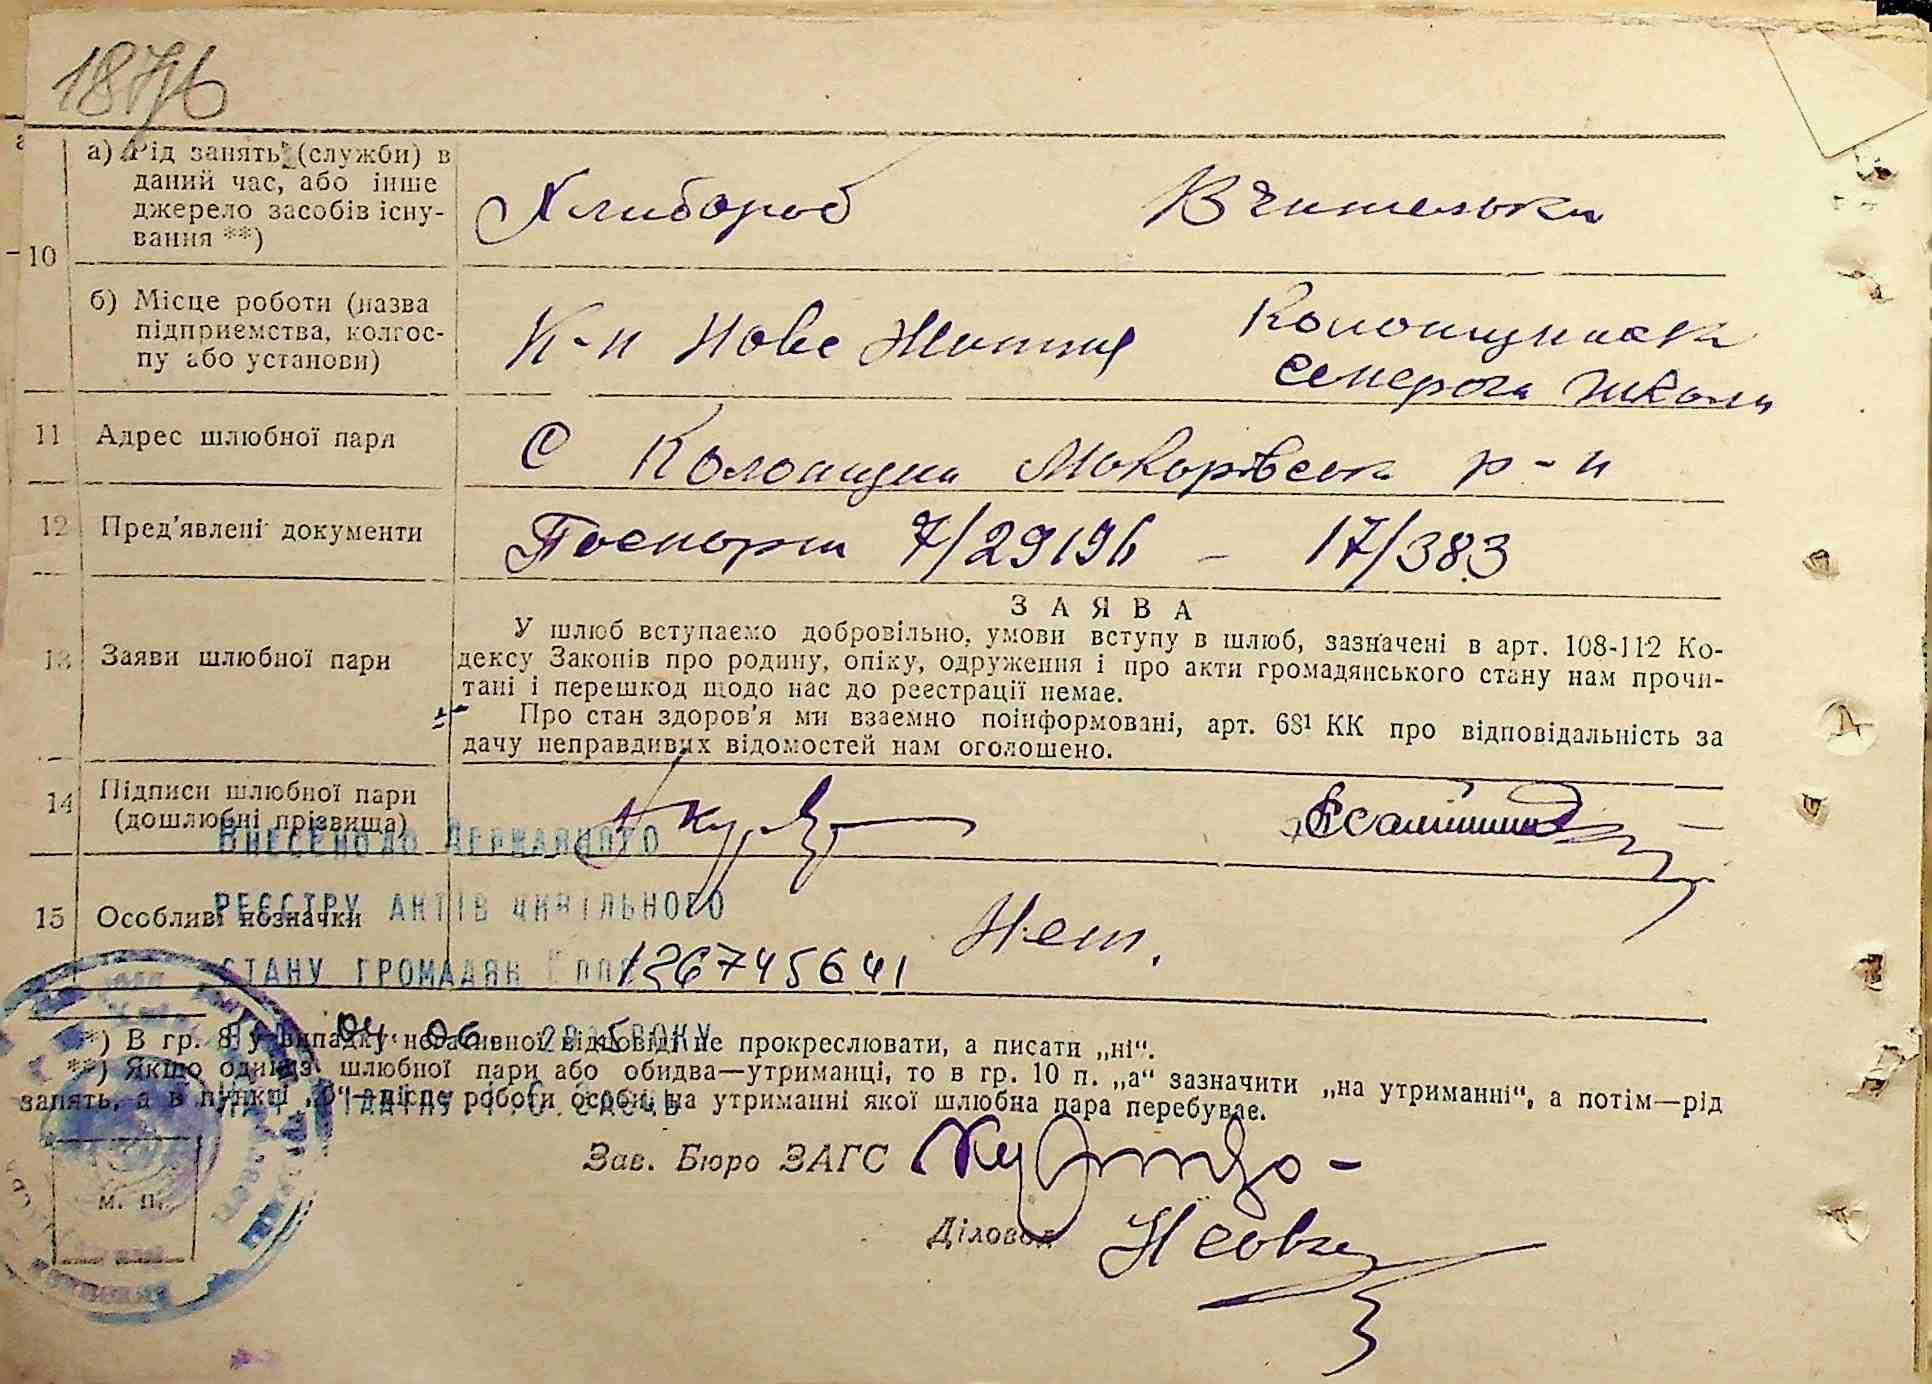 187/6
10
а) Рід занять (служби) в
даний час, або інше
джерело засобів існу-
вання **)
Хлибороб Вчителька
б) Місце роботи (назва
підприємства, колгос-
пу або установи)
К-п Нове Життя Колонщинска
семерічн школи
11 Адрес шлюбної пари
С Колонщини Макорівськ р-н
12 Пред'явлені документи
Поспорти 7/29196 - 17/383
13 Заяви шлюбної пари
ЗАЯВА
У шлюб вступаємо добровільно, умови вступу в шлюб, зазначені в арт. 108-112 Ко-
дексу Законів про родину, опіку, одруження і про акти громадянського стану нам прочи-
тані і перешкод щодо нас до реєстрації немає.
Про стан здоров'я ми взаємно поінформовані, арт. 68¹ КК про відповідальність за
дачу неправдивих відомостей нам оголошено.
14 Підписи шлюбної пари
(дошлюбні прізвища)
Внесено до Державного
реєстру актів цивільного
15 Особливі позначки
Нет.
стану громадян 126745641
04.06. року
*) В гр. 8 у випадку негативної відповіді не прокреслювати, а писати „ні“.
**) Якщо один із шлюбної пари або обидва—утриманці, то в гр. 10 п. „а“ зазначити „на утриманні“, а потім—рід
занять, а в пункті „б“—місце роботи особи, на утриманні якої шлюбна пара перебуває.
Зав. Бюро ЗАГС
м. п.
Діловод